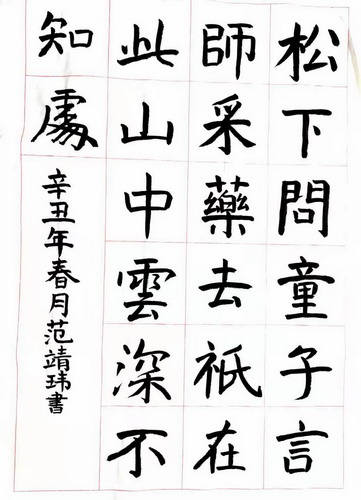 松下問童子言
師采藥去祇在
此山中雲深不
知處
辛丑年春月范靖玮書